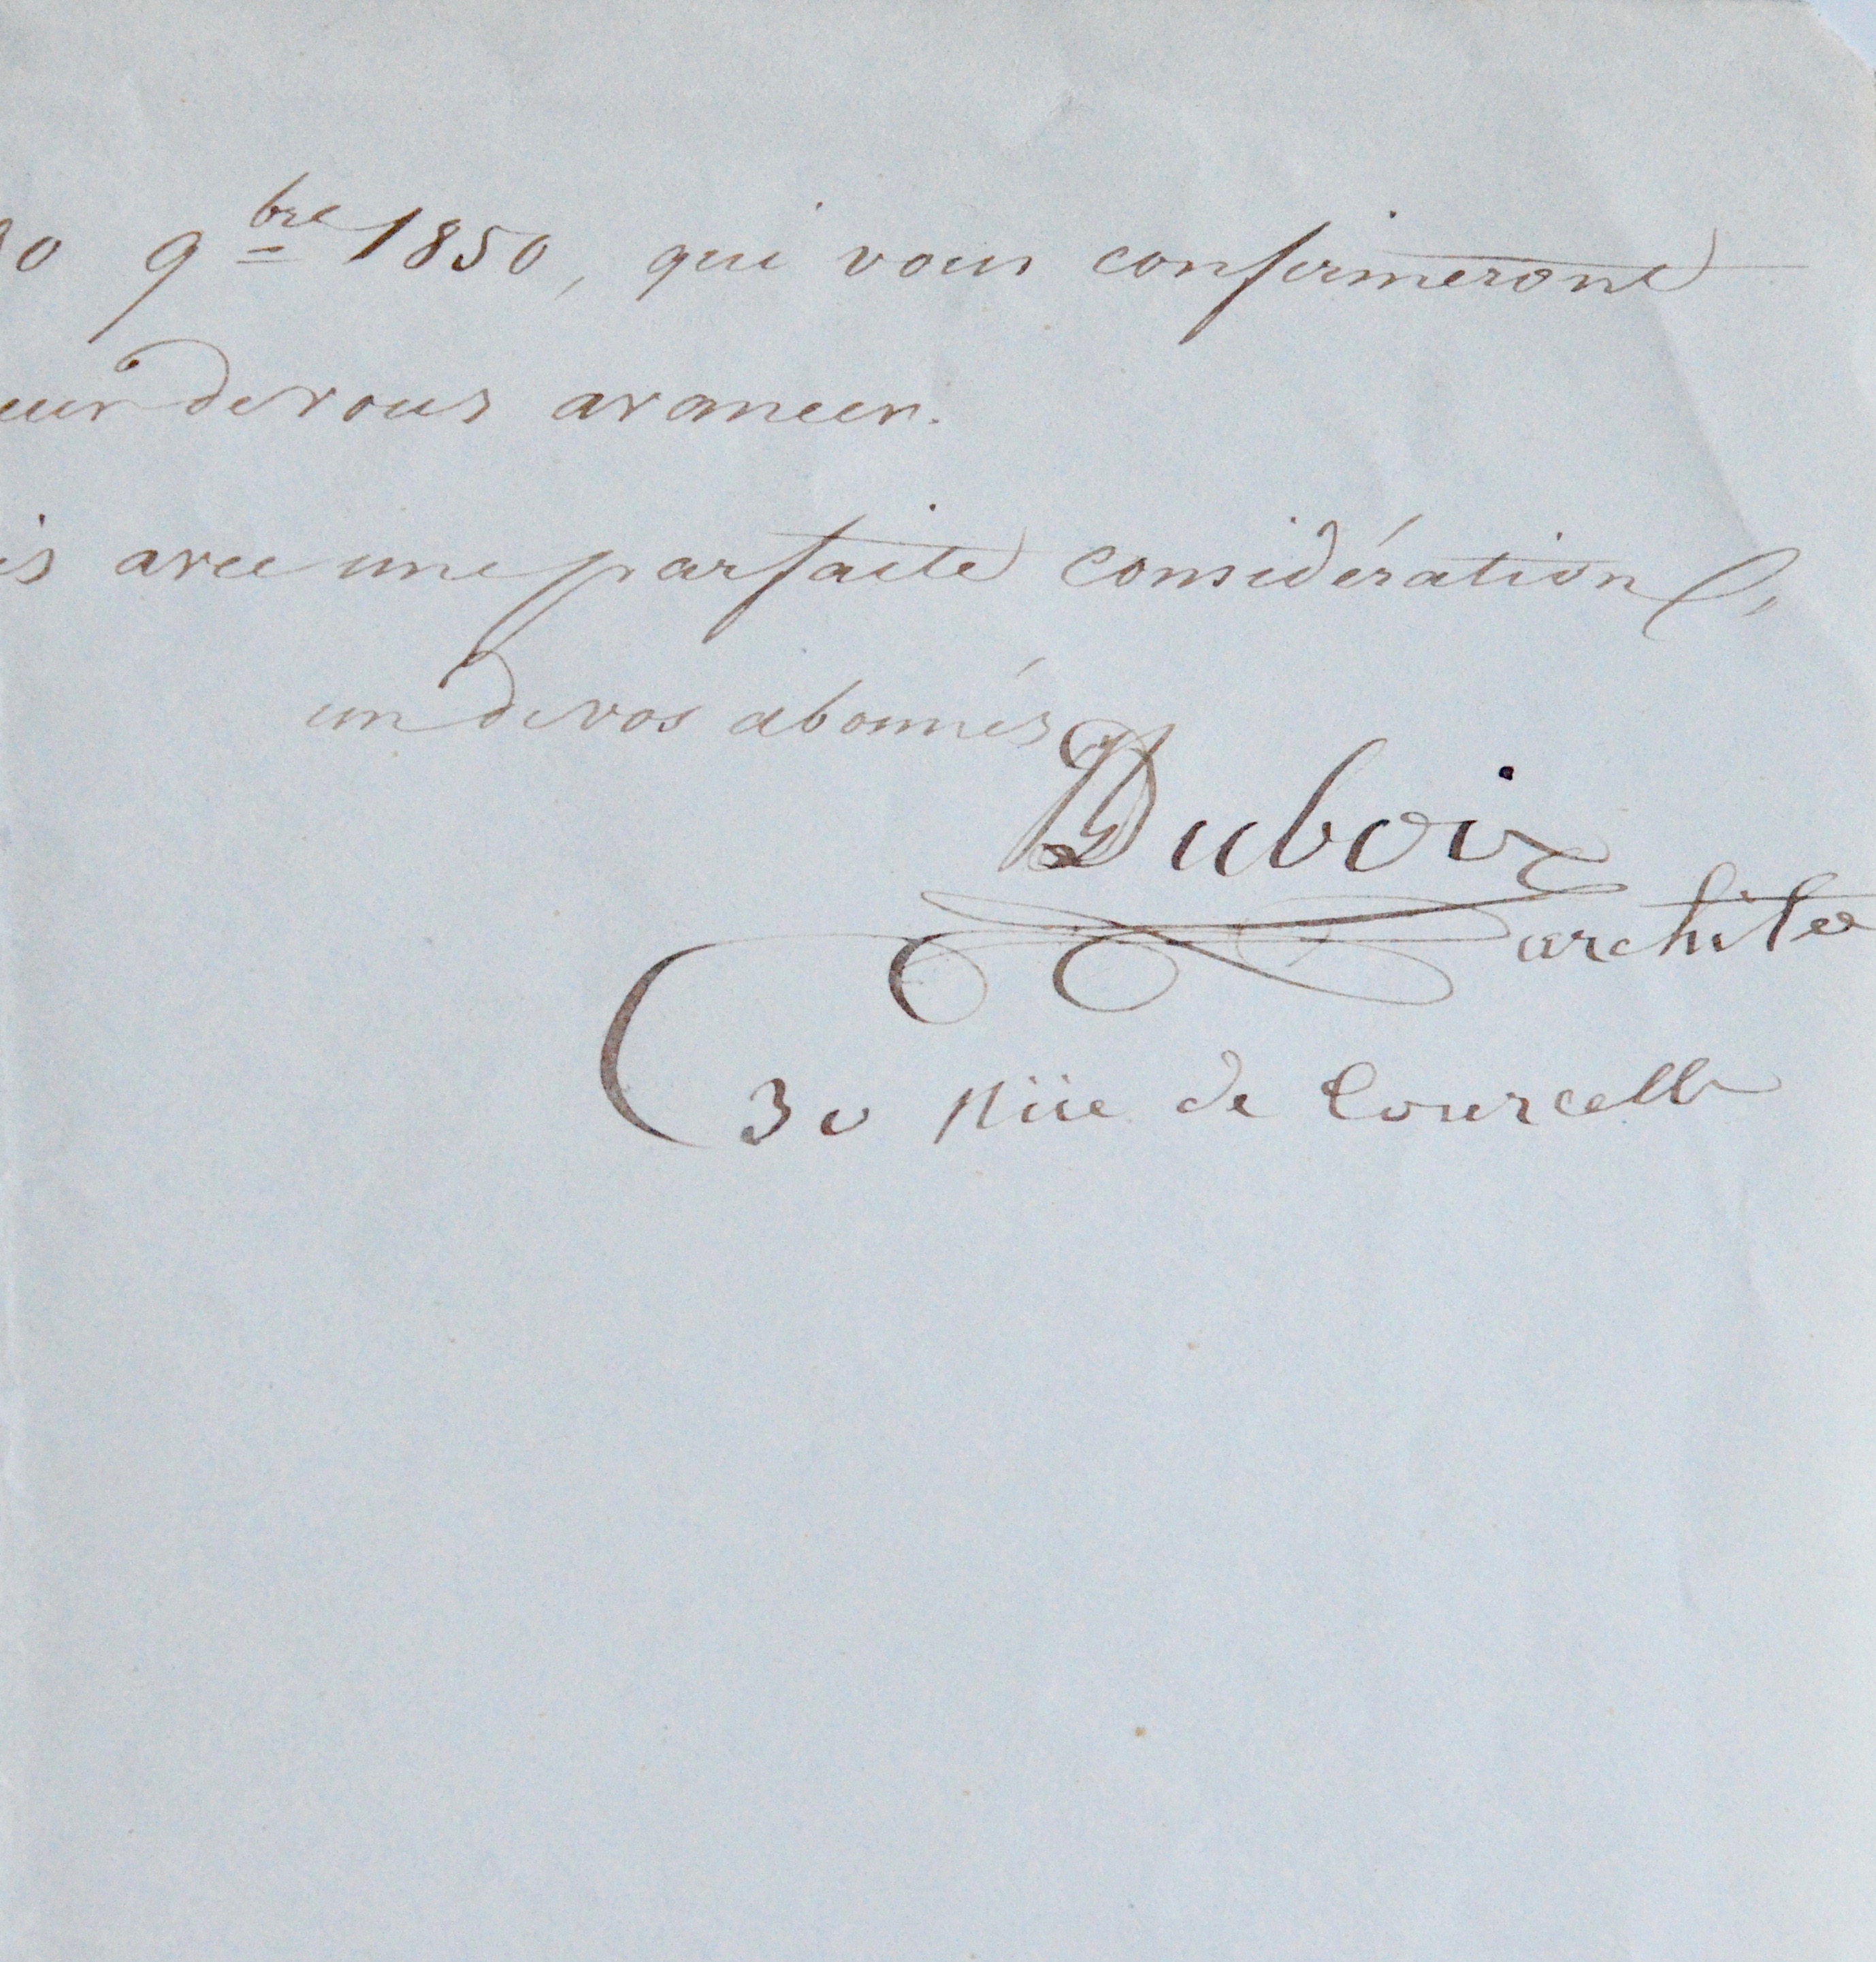 30 9bre 1850, qui vous confirmeront
eur de vous avancer.
is avec une parfaite considération,
un de vos abonnés
Dubois
archite
30 Rüe de Courcelle